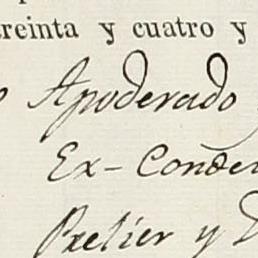 treinta y cuatro y
Apoderado
Ex-Conde
Pxelier y